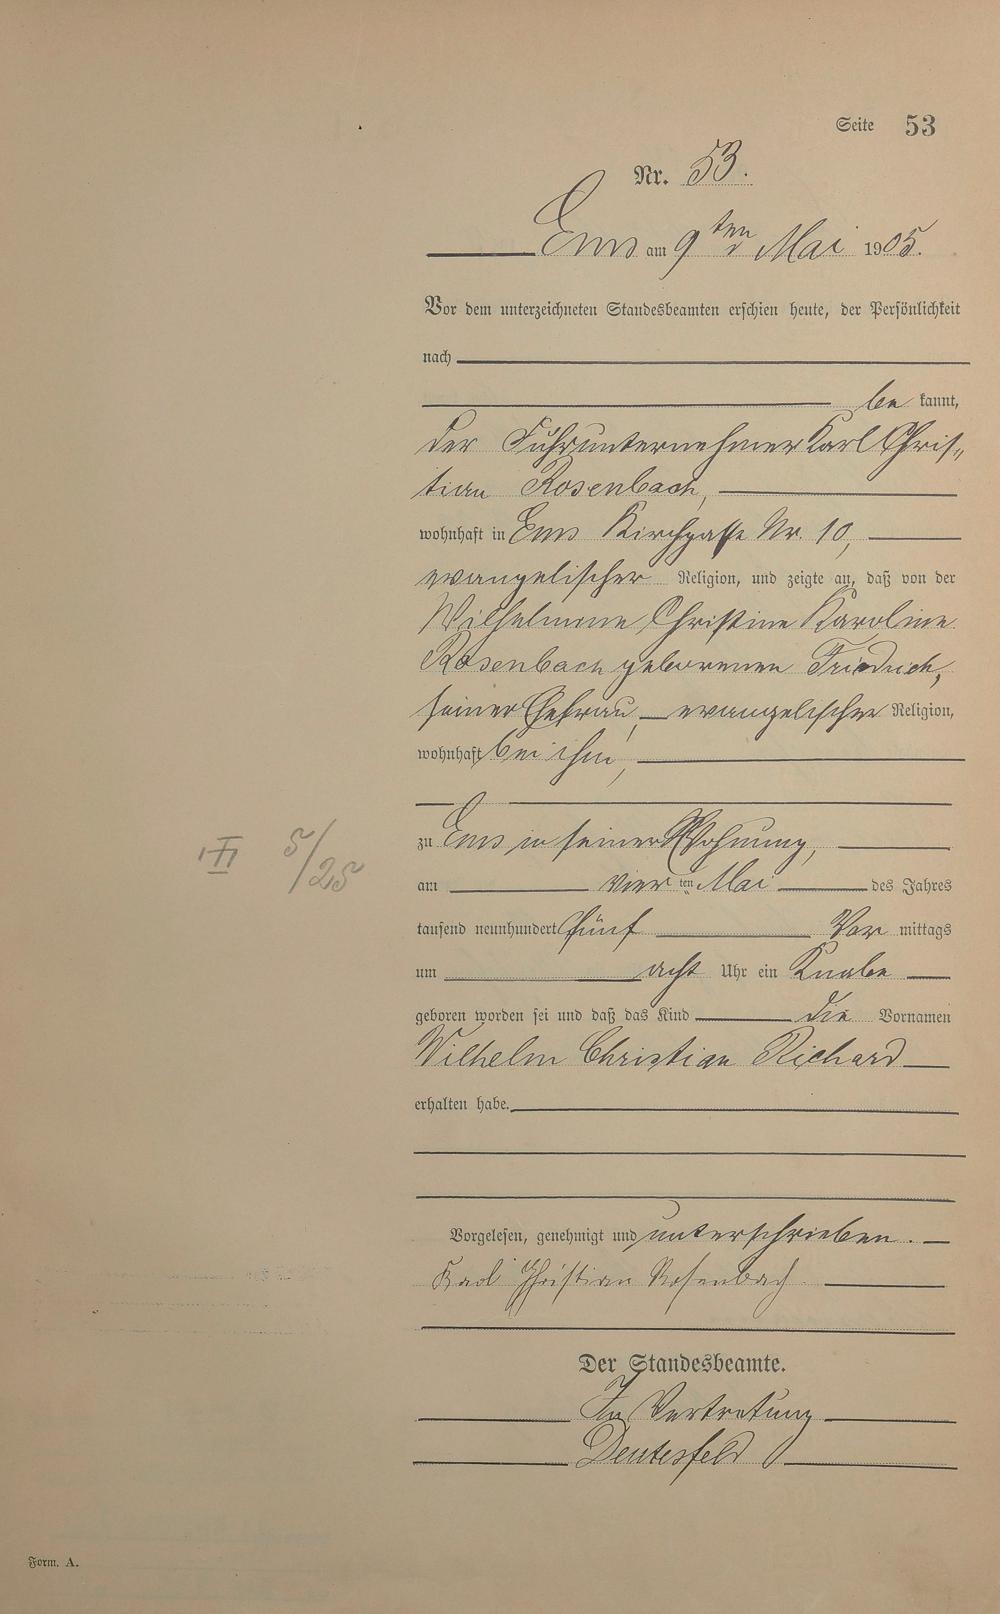 Seite 53
Nr. 53.
Ems am 9ten Mai 1905.
Vor dem unterzeichneten Standesbeamten erschien heute, der Persönlichkeit
nach
be kannt,
der Fuhrunternehmer Karl Chris„
tian Rosenbach,
wohnhaft in Ems Kirchgasse Nr. 10,
evangelischer Religion, und zeigte an, daß von der
Wilhelmine Christine Karoline
Rosenbach geborenen Friedrich,
seiner Ehefrau, evangelischer Religion,
wohnhaft bei ihm,
zu Ems in seiner Wohnung,
am vier ten Mai des Jahres
tausend neunhundert fünf Vor mittags
um acht Uhr ein Knabe
geboren worden sei und daß das Kind die Vornamen
Wilhelm Christian Richard
erhalten habe.
III 5/25
Vorgelesen, genehmigt und unterschrieben.
Karl Christian Rosenbach
Der Standesbeamte.
In Vertretung
Deutesfeld
Form. A.